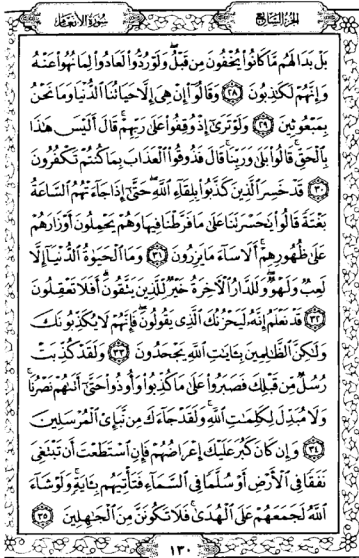 سورة الأنعام
الجزء السابع
بَلْ بَدَا لَهُم مَّا كَانُوا۟ يُخْفُونَ مِن قَبْلُ ۖ وَلَوْ رُدُّوا۟ لَعَادُوا۟ لِمَا نُهُوا۟ عَنْهُ
وَإِنَّهُمْ لَكَٰذِبُونَ ٢٨ وَقَالُوٓا۟ إِنْ هِىَ إِلَّا حَيَاتُنَا ٱلدُّنْيَا وَمَا نَحْنُ
بِمَبْعُوثِينَ ٢٩ وَلَوْ تَرَىٰٓ إِذْ وُقِفُوا۟ عَلَىٰ رَبِّهِمْ ۚ قَالَ أَلَيْسَ هَٰذَا
بِٱلْحَقِّ ۚ قَالُوا۟ بَلَىٰ وَرَبِّنَا ۚ قَالَ فَذُوقُوا۟ ٱلْعَذَابَ بِمَا كُنتُمْ تَكْفُرُونَ
٣٠ قَدْ خَسِرَ ٱلَّذِينَ كَذَّبُوا۟ بِلِقَآءِ ٱللَّهِ ۖ حَتَّىٰٓ إِذَا جَآءَتْهُمُ ٱلسَّاعَةُ
بَغْتَةً قَالُوا۟ يَٰحَسْرَتَنَا عَلَىٰ مَا فَرَّطْنَا فِيهَا وَهُمْ يَحْمِلُونَ أَوْزَارَهُمْ
عَلَىٰ ظُهُورِهِمْ ۚ أَلَا سَآءَ مَا يَزِرُونَ ٣١ وَمَا ٱلْحَيَوٰةُ ٱلدُّنْيَآ إِلَّا
لَعِبٌ وَلَهْوٌ ۖ وَلَلدَّارُ ٱلْـَٔاخِرَةُ خَيْرٌ لِّلَّذِينَ يَتَّقُونَ ۗ أَفَلَا تَعْقِلُونَ
٣٢ قَدْ نَعْلَمُ إِنَّهُۥ لَيَحْزُنُكَ ٱلَّذِى يَقُولُونَ ۖ فَإِنَّهُمْ لَا يُكَذِّبُونَكَ
وَلَٰكِنَّ ٱلظَّٰلِمِينَ بِـَٔايَٰتِ ٱللَّهِ يَجْحَدُونَ ٣٣ وَلَقَدْ كُذِّبَتْ
رُسُلٌ مِّن قَبْلِكَ فَصَبَرُوا۟ عَلَىٰ مَا كُذِّبُوا۟ وَأُوذُوا۟ حَتَّىٰٓ أَتَىٰهُمْ نَصْرُنَا ۚ
وَلَا مُبَدِّلَ لِكَلِمَٰتِ ٱللَّهِ ۚ وَلَقَدْ جَآءَكَ مِن نَّبَإِى۟ ٱلْمُرْسَلِينَ
٣٤ وَإِن كَانَ كَبُرَ عَلَيْكَ إِعْرَاضُهُمْ فَإِنِ ٱسْتَطَعْتَ أَن تَبْتَغِىَ
نَفَقًا فِى ٱلْأَرْضِ أَوْ سُلَّمًا فِى ٱلسَّمَآءِ فَتَأْتِيَهُم بِـَٔايَةٍ ۚ وَلَوْ شَآءَ
ٱللَّهُ لَجَمَعَهُمْ عَلَى ٱلْهُدَىٰ ۚ فَلَا تَكُونَنَّ مِنَ ٱلْجَٰهِلِينَ ٣٥
١٣٠